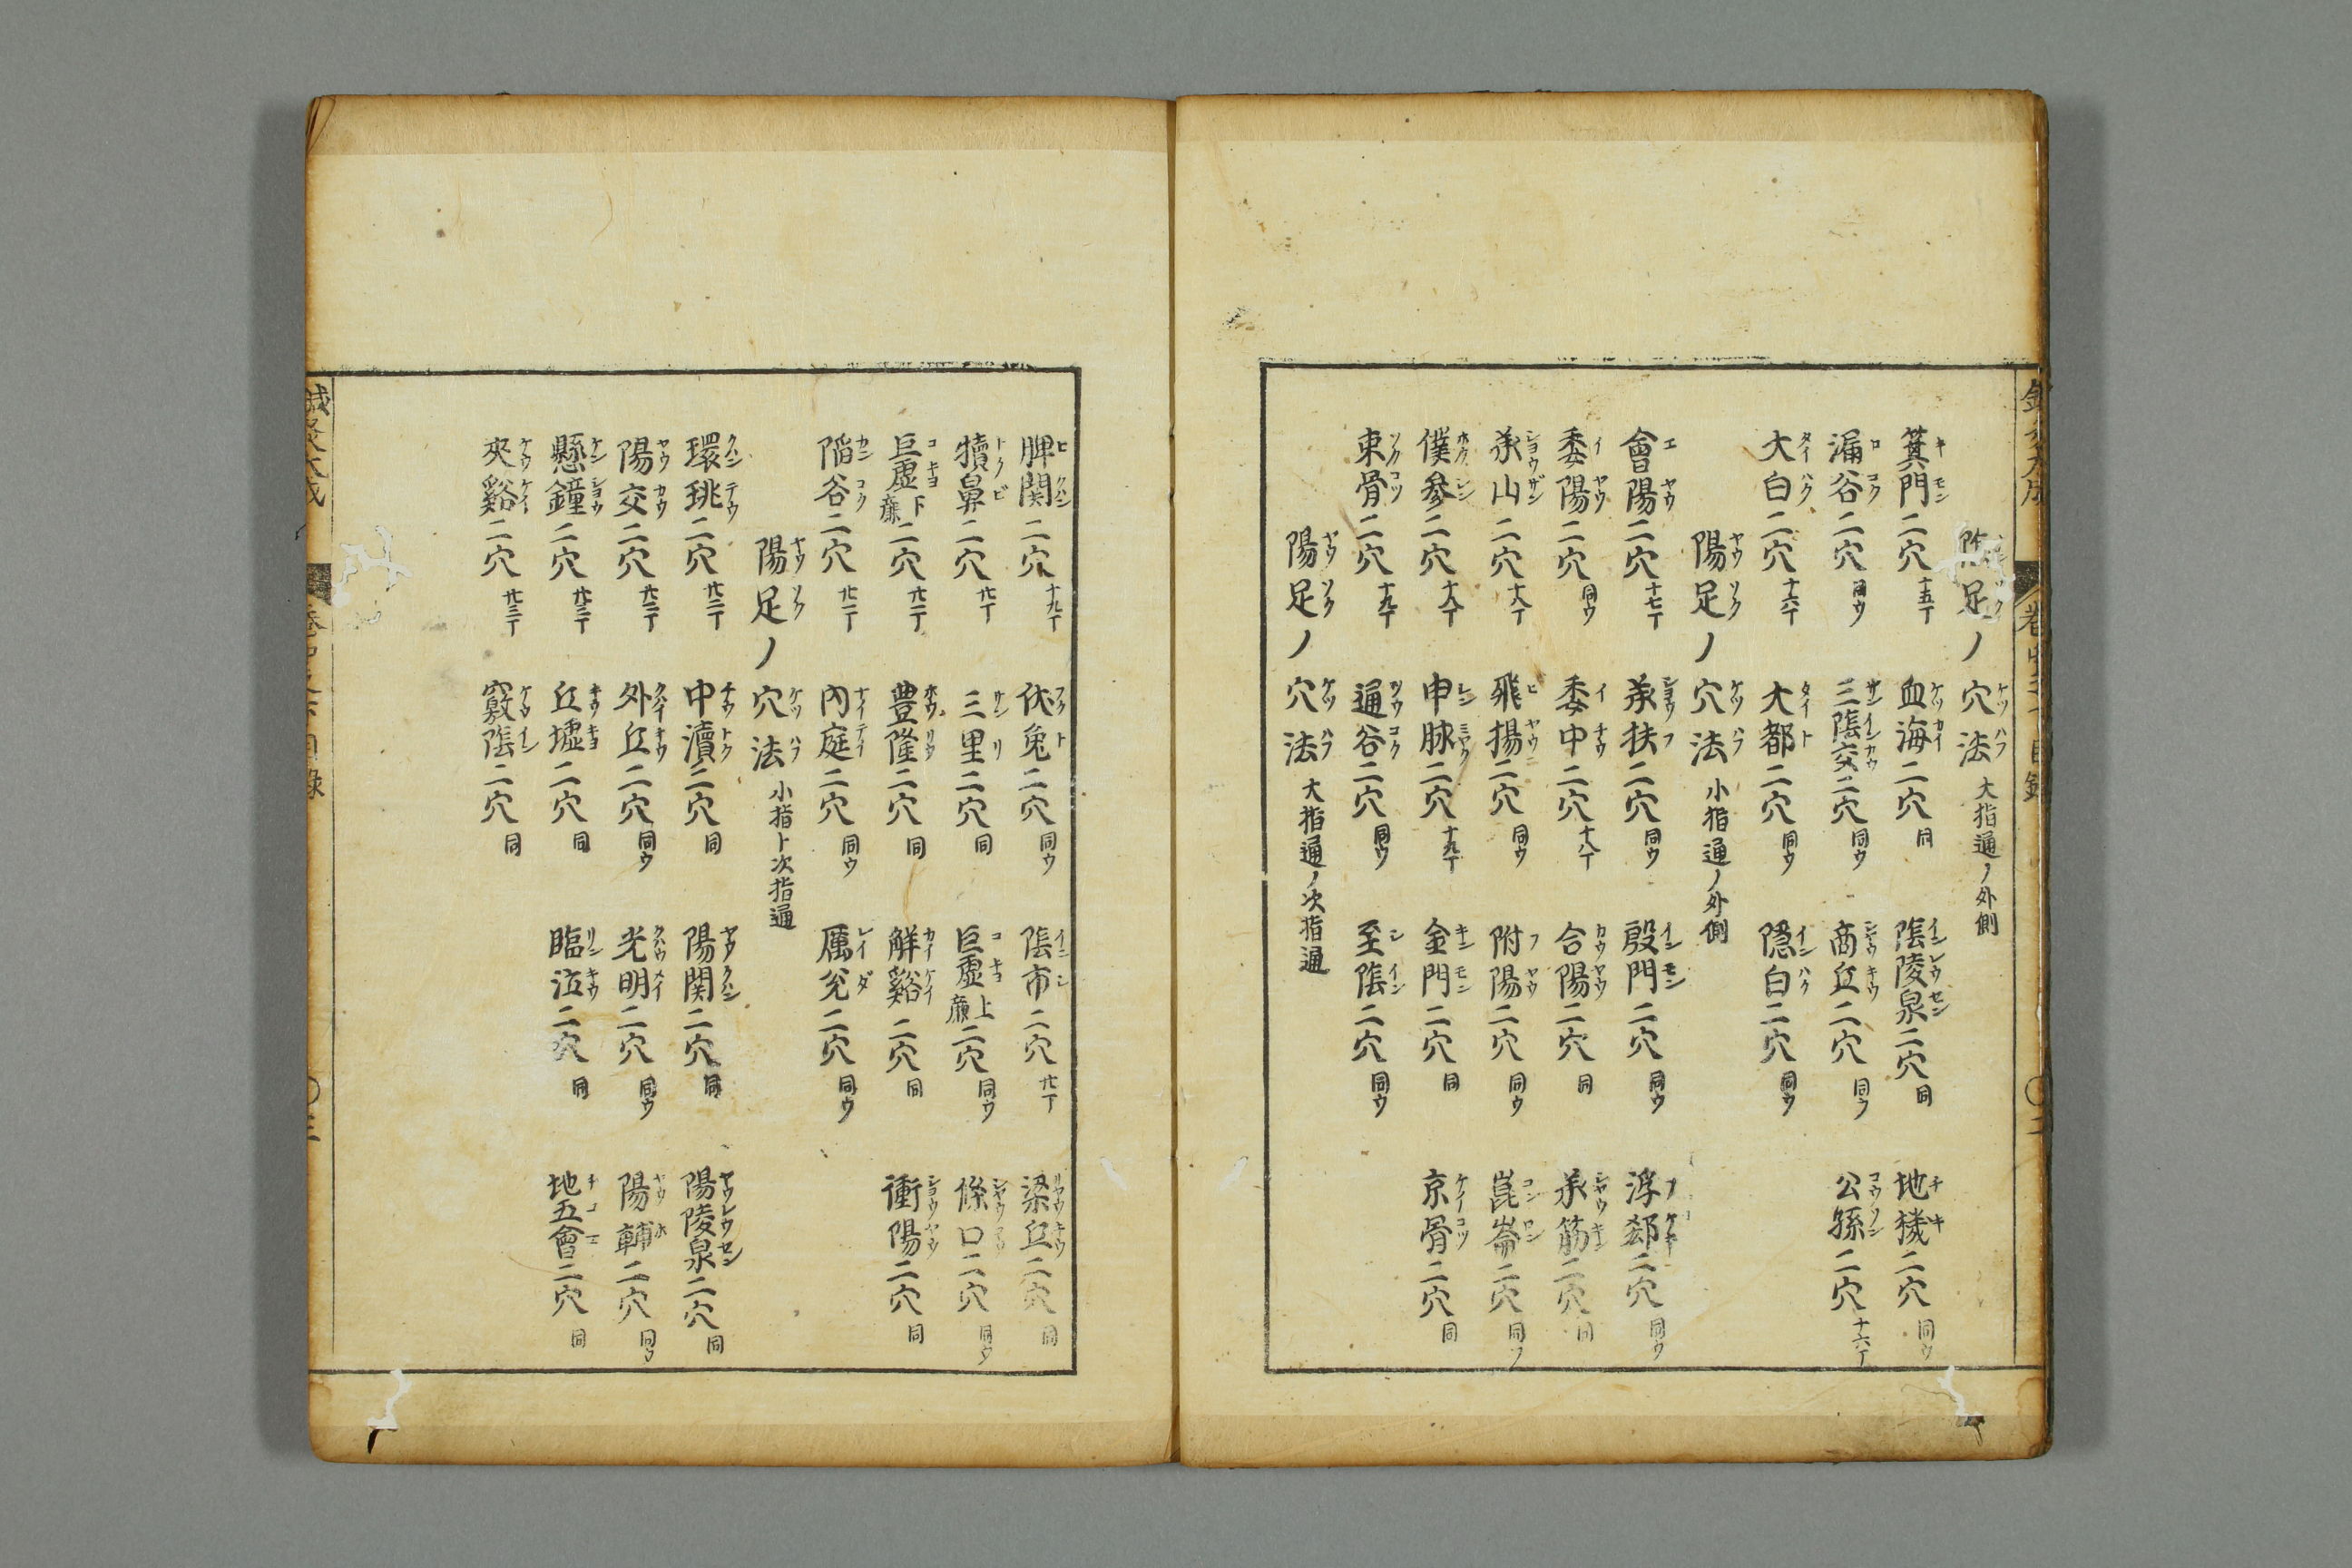 足ノ穴法 大指通ノ外側
箕門二穴 十五丁 血海二穴 同 隂陵泉二穴 同 地機二穴 同ウ
漏谷二穴 同ウ 三隂交二穴 同ウ 商丘二穴 同ウ 公孫二穴 十六丁
大白二穴 十六丁 大都二穴 同ウ 隠白二穴 同ウ
陽足ノ穴法 小指通ノ外側
會陽二穴 十七丁 承扶二穴 同ウ 殷門二穴 同ウ 浮郄二穴 同ウ
委陽二穴 同ウ 委中二穴 十八丁 合陽二穴 同 承筋二穴 同
承山二穴 十八丁 飛揚二穴 同ウ 附陽二穴 同ウ 崑崙二穴 同ウ
僕參二穴 十八丁 申脉二穴 十九丁 金門二穴 同 京骨二穴 同
束骨二穴 十九丁 通谷二穴 同ウ 至隂二穴 同ウ
陽足ノ穴法 大指通ノ次指通
脾関二穴 十九丁 伏兔二穴 同ウ 隂市二穴 廿丁 梁丘二穴 同
犢鼻二穴 廿丁 三里二穴 同 巨虚上廉二穴 同ウ 條口二穴 同ウ
巨虚下廉二穴 廿一丁 豊隆二穴 同 解谿二穴 同 衝陽二穴 同
陥谷二穴 廿一丁 内庭二穴 同ウ 厲兌二穴 同ウ
陽足ノ穴法 小指ト次指通
環珧二穴 廿二丁 中瀆二穴 同 陽関二穴 同 陽陵泉二穴 同
陽交二穴 廿二丁 外丘二穴 同ウ 光明二穴 同ウ 陽輔二穴 同ウ
懸鐘二穴 廿三丁 丘墟二穴 同 臨泣二穴 同 地五會二穴 同
夾谿二穴 廿三丁 竅隂二穴 同